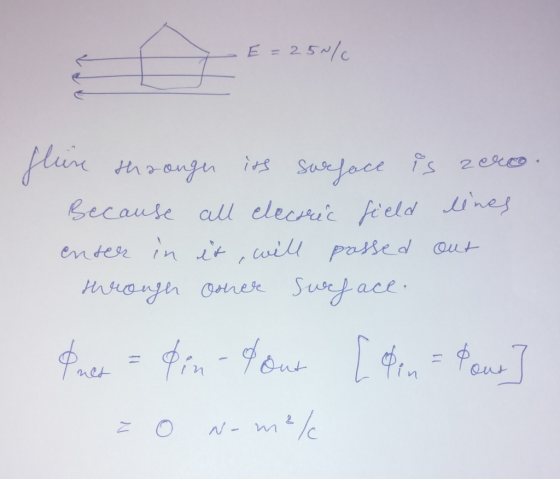 E = 25 N/C
flux through its surface is zero.
Because all electric field lines
enter in it, will passed out
through other surface.
ϕnet = ϕin - ϕout [ϕin = ϕout]
= 0 N-m²/C